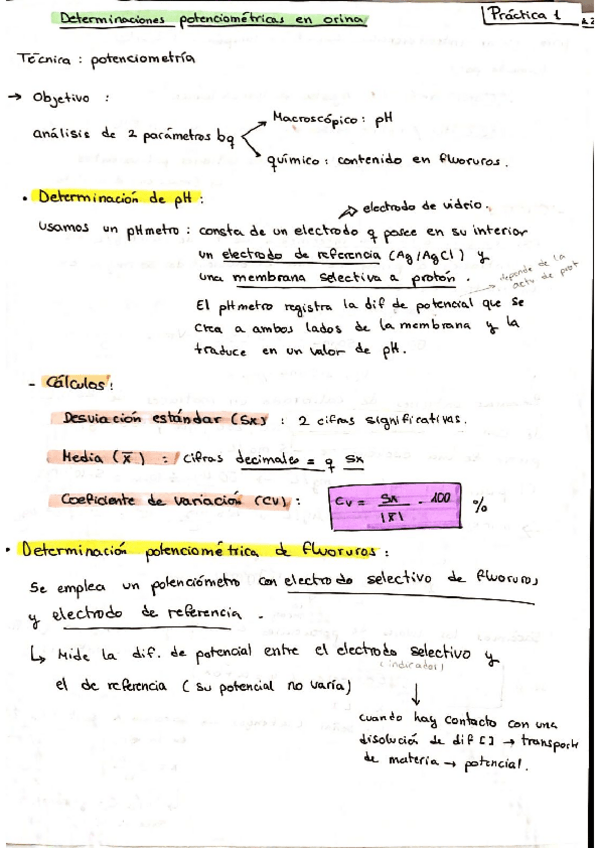 Determinaciones potenciométricas en orina
Práctica 1
Técnica : potenciometría
→ Objetivo :
análisis de 2 parámetros bq
Macroscópico : pH
químico : contenido en fluoruros.
• Determinación de pH :
electrodo de vidrio.
Usamos un pHmetro : consta de un electrodo q posee en su interior
un electrodo de referencia (Ag/AgCl) y
una membrana selectiva a protón.
→ depende de la
activ de prot
El pHmetro registra la dif de potencial que se
crea a ambos lados de la membrana y la
traduce en un valor de pH.
- Cálculos :
Desviación estándar (Sx) : 2 cifras significativas.
Media (x̄) : cifras decimales = q Sx
Coeficiente de variación (CV) : CV = Sx / |x̄| · 100 %
• Determinación potenciométrica de fluoruros :
Se emplea un potenciómetro con electrodo selectivo de fluoruros
y electrodo de referencia .
↳ Mide la dif. de potencial entre el electrodo selectivo y
(indicador)
el de referencia ( su potencial no varía)
cuando hay contacto con una
disolución de dif [ ] → transporte
de materia → potencial.